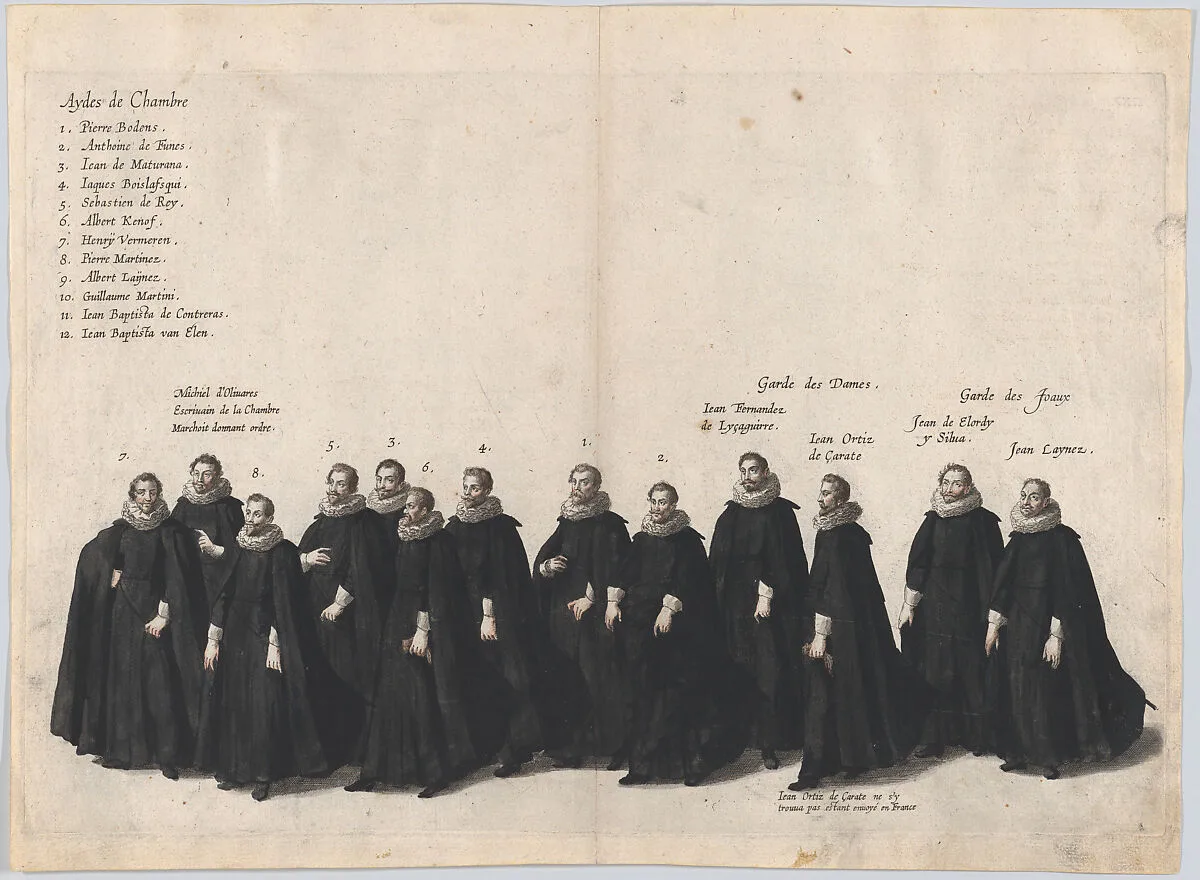 Aydes de Chambre
1. Pierre Bodens.
2. Anthoine de Funes.
3. Iean de Maturana.
4. Iaques Boislaſsqui.
5. Sebastien de Rey.
6. Albert Kenof.
7. Henrÿ Vermeren.
8. Pierre Martinez.
9. Albert Laÿnez.
10. Guillaume Martini.
11. Iean Baptista de Contreras.
12. Iean Baptista van Elen.
Michiel d'Oliuares
Escriuain de la Chambre
Marchoit donnant ordre.
Garde des Dames.
Iean Fernandez
de Lyçaguirre.
Iean Ortiz
de Çarate
Garde des Joaux
Jean de Elordy
y Silua.
Jean Laynez.
7.
8.
5.
3.
6.
4.
1.
2.
Iean Ortiz de Çarate ne s'y
trouua pas estant enuoyé en France